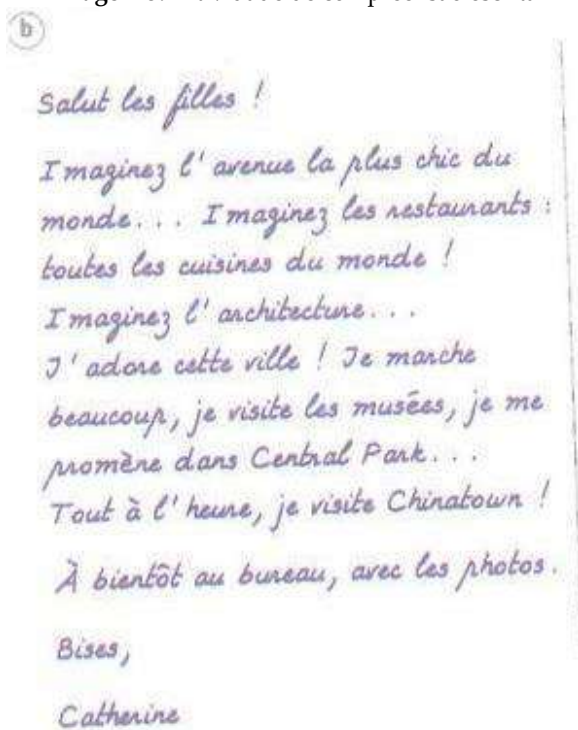 b
Salut les filles !
Imaginez l'avenue la plus chic du
monde... Imaginez les restaurants :
toutes les cuisines du monde !
Imaginez l'architecture...
J'adore cette ville ! Je marche
beaucoup, je visite les musées, je me
promène dans Central Park...
Tout à l'heure, je visite Chinatown !
À bientôt au bureau, avec les photos.
Bises,
Catherine